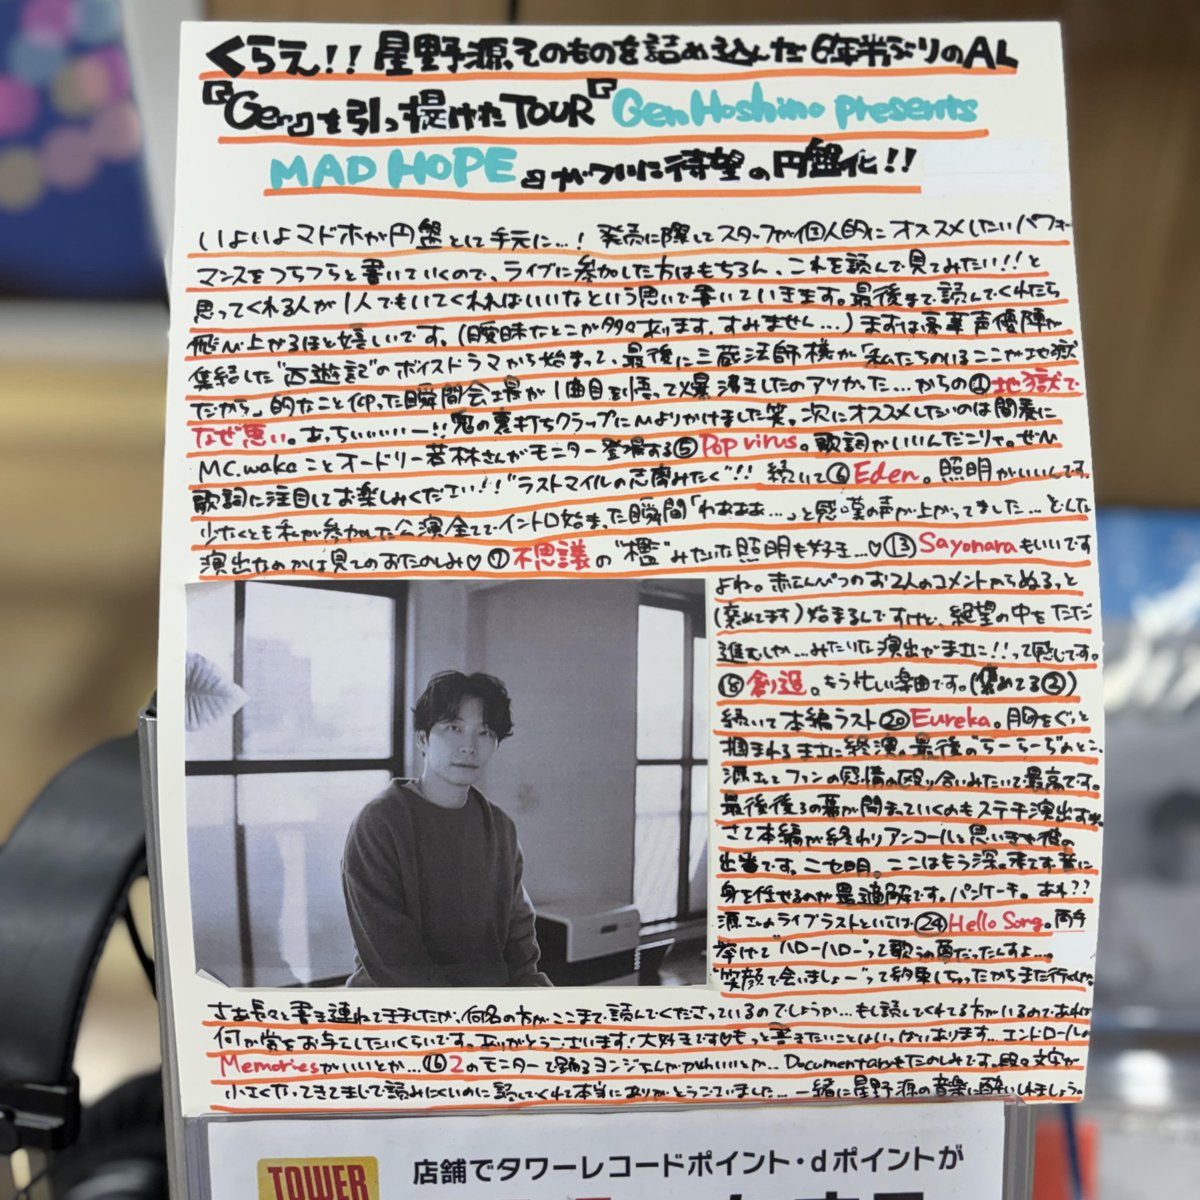 くらえ!! 星野源そのものを詰め込んだ6年半ぶりのAL
『Gen』を引っ提げたTOUR『Gen Hoshino presents
MAD HOPE』がついに待望の円盤化!!
いよいよマドホが円盤として手元に…! 発売に際してスタッフが個人的にオススメしたいパフォー
マンスをつらつらと書いていくので、ライブに参加した方はもちろん、これを読んで見てみたい!!と
思ってくれる人が1人でもいてくれればいいなという思いで書いていきます。最後まで読んでくれたら
飛び上がるほど嬉しいです。(曖昧なとこが多々あります、すみません…) まずは豪華声優陣が
集結した"西遊記"のボイスドラマから始まって、最後に三蔵法師様が「私たちのいるここが地獄
だから」的なこと仰った瞬間会場が1曲目を悟って爆沸きしたのアツかった…からの①地獄で
なぜ悪い。あっちぃぃぃー!!鬼の裏打ちクラップにMよりかけました笑。次にオススメしたいのは間奏に
MC.wakaことオードリー若林さんがモニター登場する⑤Pop virus。歌詞がいいんだこりゃ。ぜひ
歌詞に注目してお楽しみください!!"ラストマイルの志摩みたく"!! 続いて⑥Eden。照明がいいんです。
少なくとも私が参加した公演全てでイントロ始まった瞬間「わあああ…」と感嘆の声が上がってました…どんな
演出なのかは見てのおたのしみ♡⑦不思議の"檻"みたいな照明も好き…♡⑬Sayonaraもいいです
よね。赤えんぴつのお2人のコメントからぬるっと
(褒めてます)始まるんですけど、絶望の中をただ
進むしか…みたいな演出がまじに!!って感じです。
⑱創造。もう忙しい楽曲です。(褒めてる②)
続いて本編ラスト⑳Eureka。胸をぐっと
掴まれるまじに終演。最後の"らーらーらー"のとこ、
源さんとファンの感情の殴り合いみたいで最高です。
最後後ろの幕が開まっていくのもステキ演出すぎ。
さて本編が終わりアンコールと思いきや彼の
出番です。ニセ明。ここはもう深く考えず音に
身を任せるのが最適解です。パンケーキ。あれ??
源さんのライブラストといえば㉔Hello Song。両手
挙げて"ハローハロー"って歌うの夢だったんすよ…。
"笑顔で会いましょー"って約束しちゃったからまた行くしか。
さぁ長々と書き連ねてきましたが、何名の方がここまで読んでくださっているのでしょうか…もし読んでくれてる方がいるのであれば
何か賞をお与えしたいくらいです。ありがとうございます!大好きです♡もっと書きたいことはいっぱいあります…エンドロールの
Memoriesがいいとか…⑯2のモニターで踊るヨンジさんがかわいいとか… Documentaryもたのしみです。段々文字が
小さくなってきてまして読みにくいのに読んでくれて本当にありがとうございました…一緒に星野源の音楽に酔いしれましょう。
TOWER
店舗でタワーレコードポイント・dポイントが